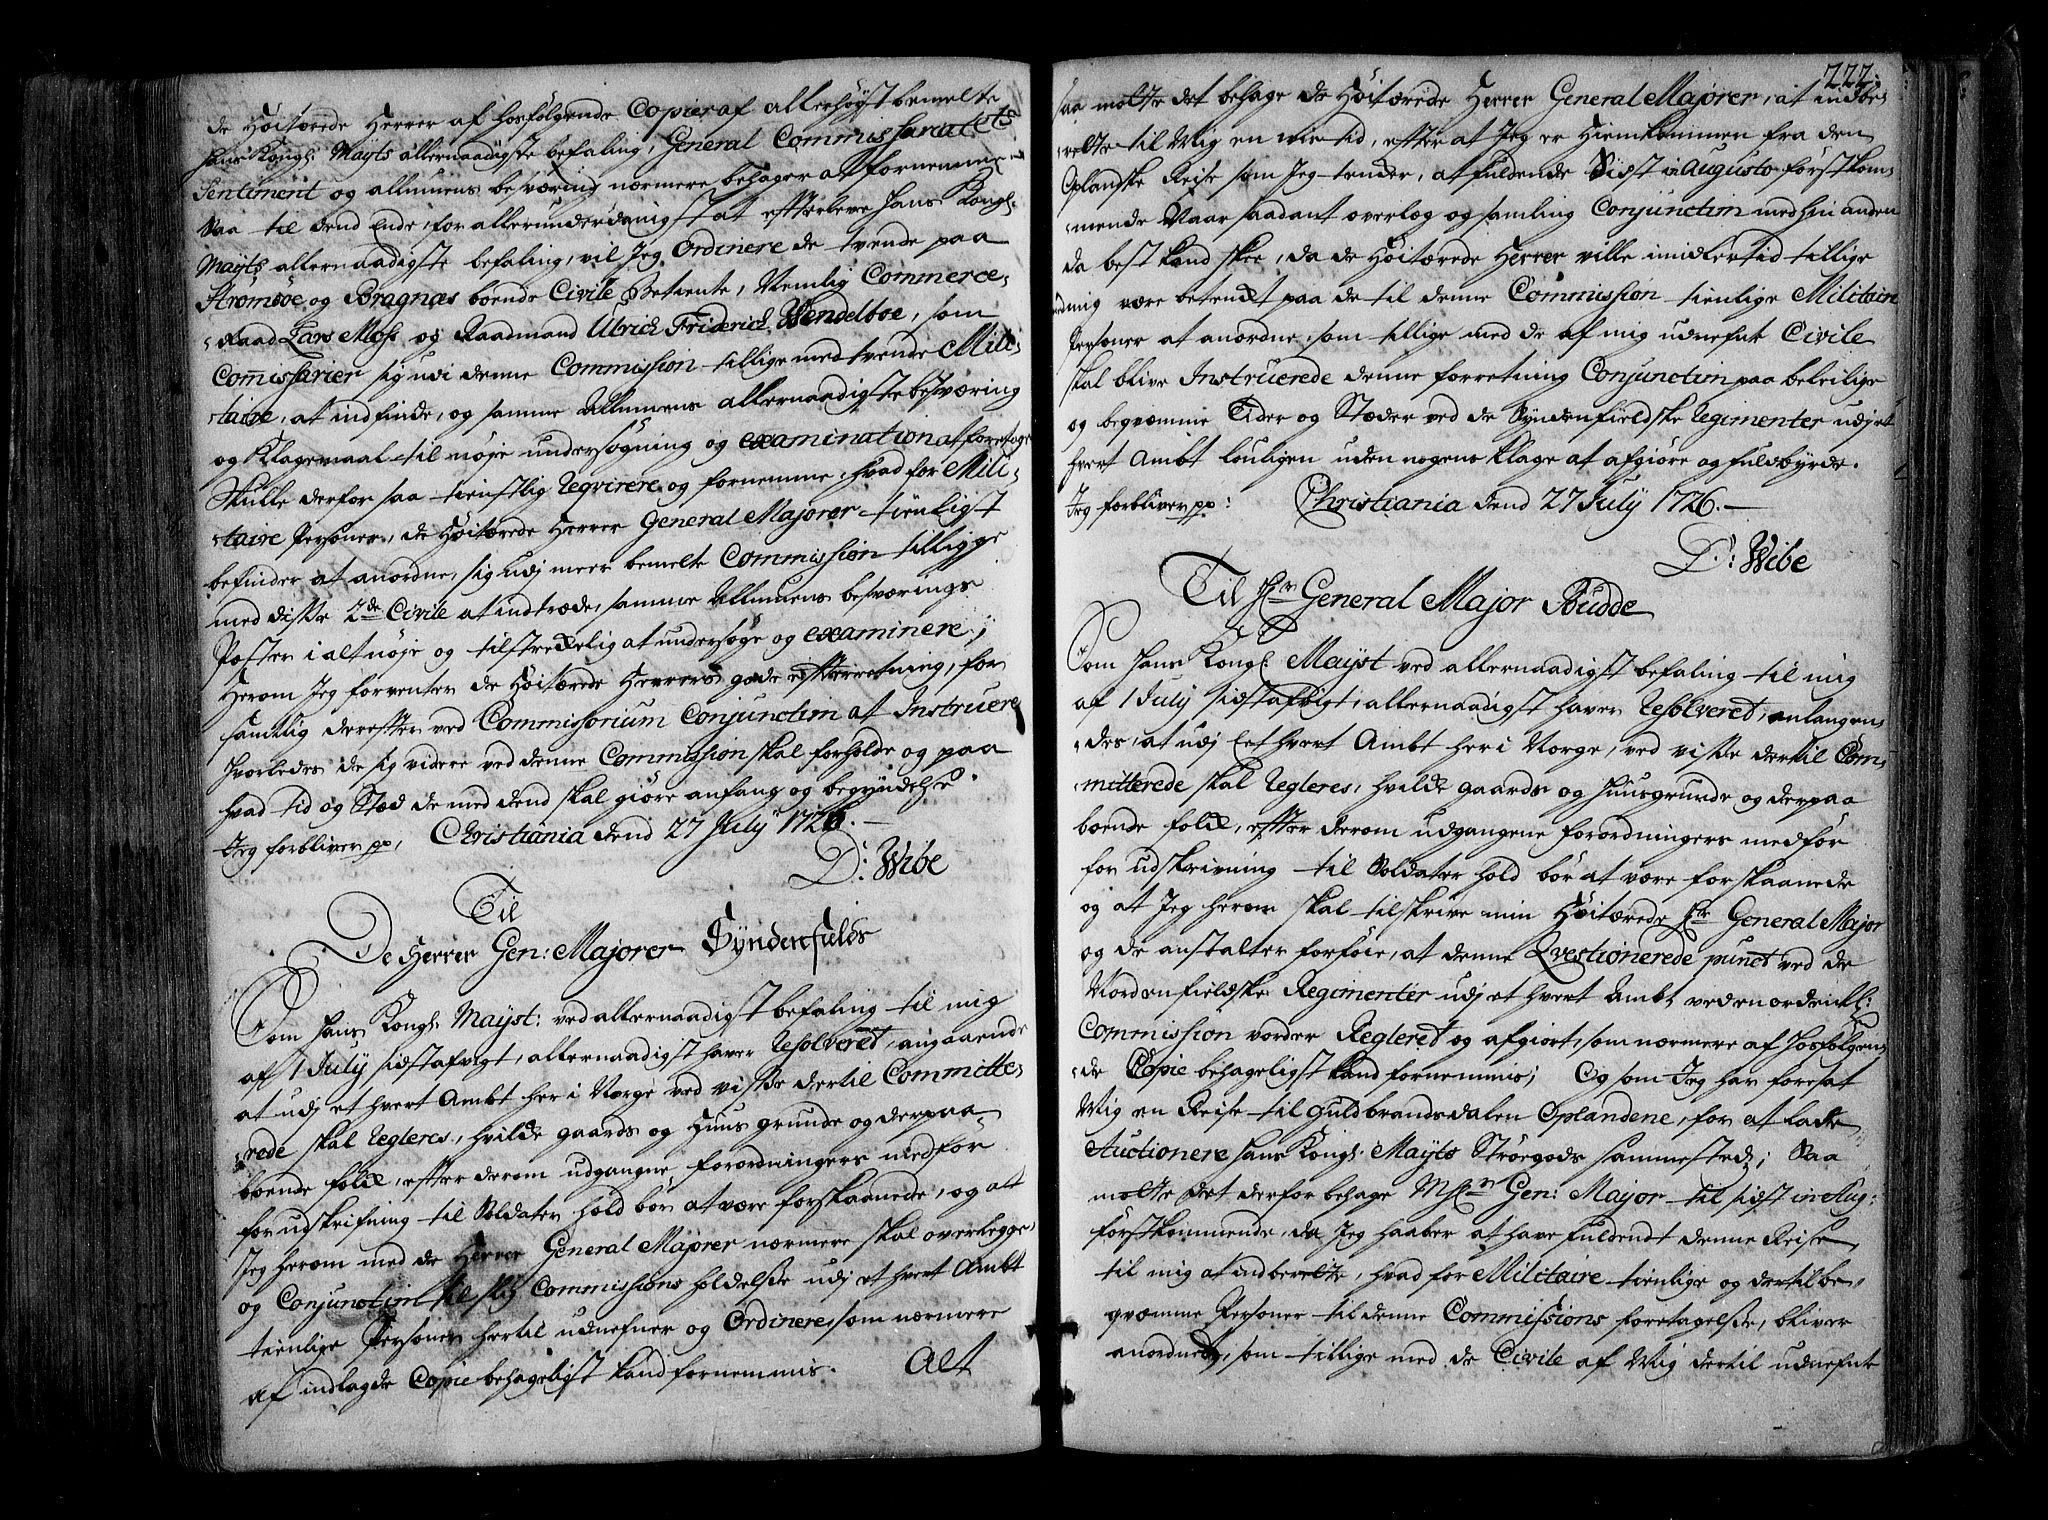 de Høitærede Herrer af hosfølgende Copier af allerhøyst bemelte
Hans Kongl: Mayts allernaadigste befaling, General Commissariatets
Sentiment og allmuens besværing nærmere behager at fornemme,
Saa til dend Ende, for allerunderdanigst at efterleve Hans Kongl:
Mayts allernaadigste befaling, vil Jeg Ordinere de tvende paa
Strømsøe og Bragnæs boende Civile Betiente, Nemlig Commerce-
-Raad Lars Moss og Raadmand Ulrich Friderich Wendelboe, som
Commissarier sig udi denne Commission tillige med tvende Mili-
-taire, at indfinde, og samme Allmuens allernaadigste besværing
og Klagemaal til nøje undersøgning og examination at foretage
Skulle derfor saa tienstlig Reqvirere og fornemme, hvad for Mili-
-taire Personer, de Høitærede Herrer General Majorer tienligst
befinder at anordne, sig udj meer bemelte Commission tillige
med disse 2de Civile at indtræde, samme Allmuens besværings
Poster i alt nøje og tilstrekelig at undersøge og examinere;
Herom Jeg forventer de Høitærede Herrers gode efterretning, for
samtlig derefter ved Commissorium Conjunctim at Instruere
Hvorledes de sig videre ved denne Commission skal forholde og paa
hvad tid og Stæd de med dend skal giøre anfang og begyndelse.
Jeg forbliver pp, Christiania dend 27 July 1726.
D: Wibe
Til
De Herrer Gen: Majorer Syndenfields
Som Hans Kongl: Mayst: ved allernaadigst befaling til mig
af 1 July sidstafvigt, allernaadigst haver Resolveret, angaaende
at udj et hvert Ambt her i Norge ved visse dertil Committe-
-rede skal Regleres, hvilke gaards og Huus grunde og derpaa
boende folk, efter derom udgangne forordningers medfør
for udskrifning til Soldater hold bør at være forskaanede, og at
Jeg herom med de Herrer General Majorer nærmere skal overlegge,
og Conjunctim til slig Commissions holdelse udj et hvert Ambt
tienlige Personer hertil udnefner og Ordinere, som nærmere
af indlagde Copie behageligst kand fornemmis. Alt
222.
saa molte det behage de Høitærede Herrer General Majorer, at indbe-
-relte til Mig en vis tid, efter at Jeg er Hiemkommen fra den
Oplandske Reise som Jeg tencker, at fuldende Sidst in Augusto førstkom-
-mende Naar saadant overlæg og samling Conjunctim med hin anden
da best kand skee, da de Høitærede Herrer ville imidlertid tillige
med mig være betenckt paa de til denne Commission tienlige Militaire
Personer at anordne, som tillige med de af mig udnefnte Civile
skal blive Instruerede denne forretning Conjunctim paa beleilige
og beqvemme Tider og Stæder ved de Syndenfieldske Regimenter udj et
hvert Ambt lovligen uden nogens Klage at afgiøre og fuldbyrde.
Jeg forbliver pp: Christiania dend 27 July 1726.
D: Wibe
Til Hr General Major Budde
Som Hans Kongl: Mayst ved allernaadigst befaling til mig
af 1 July sidstafvigt, allernaadigst haver Resolveret, anlangen-
-des, at udj Eet hvert Ambt her i Norge, ved visse dertil Com-
-mitterede skal Regleres, hvilke gaards og Huusgrunde og derpaa
boende folk, efter derom udgangene forordningers medfør
for udskrivning til Soldater hold bør at være forskaanede
og at Jeg herom skal tilskrive min Høitærede Hr General Major
og de anstalter forføie, at denne Qvestionerede punct ved de
Nordenfieldske Regimenter udj et hvert Ambt ved en ordentl:
Commission vorder Regleret og afgiort, som nærmere af Hosfølgen-
-de Copie behageligst kand fornemmis; Og som Jeg har foresat
Mig en Reise til Guldbrandsdalen Oplandene, for at lade
Auctionere Hans Kongl: Mayts Strøegods sammesteds; Saa
molte det derfor behage M Hr Gen: Major til sidst in Aug:
førstkommende, da Jeg haaber at have fuldendt denne Reise
til mig at indberelte, hvad for Militaire tienlige og dertil be-
qvæmme Personer til denne Commissions foretagelse, bliver
anordnede, som tillige med de Civile af Mig dertil udnefnte